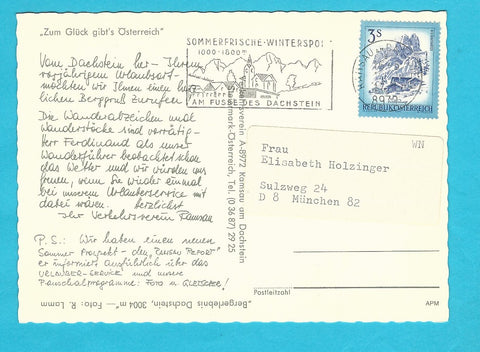 „Zum Glück gibt's Österreich"
Vom Dachstein her - Ihrem
vorjährigem Urlaubsort -
möchten wir Ihnen einen herz-
lichen Berggruß zurufen
Die Wanderabzeichen und
Wanderstöcke sind vorrätig -
Ferdinand als unser
Wanderführer beobachtet schon
das Wetter und wir würden uns
freuen, wenn Sie wieder einmal
bei unserem Urlauberservice mit
dabei wären. Herzlichst
der Verkehrsverein Ramsau
P.S.: Wir haben einen neuen
Sommer Prospekt - den
er informiert ausführlich über das
URLAUBER-SERVICE und unsere
Pauschalprogramme: Foto n. GLETSCHER!
„Bergerlebnis Dachstein, 3004 m" — Foto: R. Lamm
verein A-8972 Ramsau am Dachstein
Steiermark-Österreich, Tel. (0 36 87) 29 25
SOMMERFRISCHE·WINTERSPO
AM FUSSE DES DACHSTEIN
8972
3 S
REPUBLIK ÖSTERREICH
WN
Frau
Elisabeth Holzinger
Sulzweg 24
D 8 München 82
Postleitzahl
APM